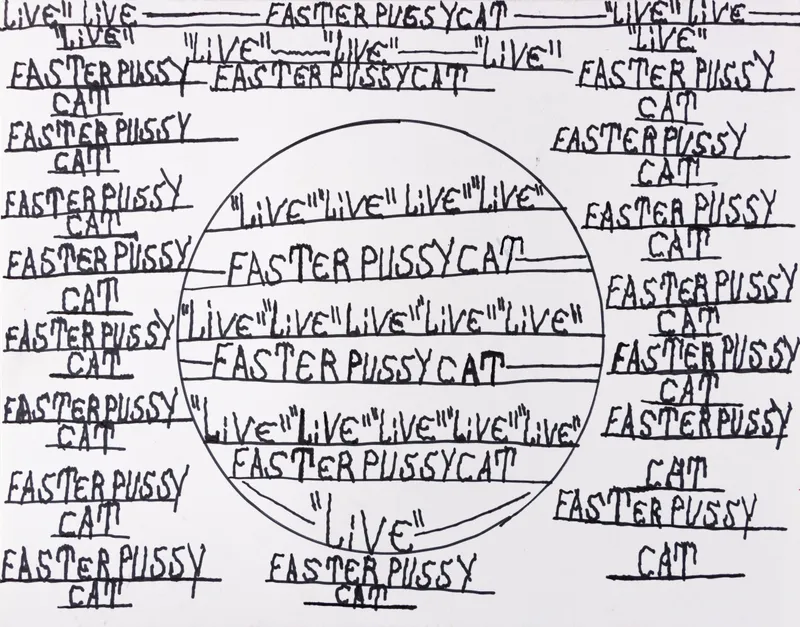 LiVE" LiVE FASTER PUSSYCAT "LiVE" LiVE
"LiVE"
FASTER PUSSY
CAT
FASTER PUSSY
CAT
FASTER PUSSY
CAT
FASTER PUSSY
CAT
FASTER PUSSY
CAT
FASTER PUSSY
CAT
FASTER PUSSY
CAT
FASTER PUSSY
CAT
"LiVE" "LiVE" "LiVE"
FASTER PUSSYCAT
"LiVE" "LiVE" LiVE" "LiVE"
FASTER PUSSYCAT
"LiVE" "LiVE" "LiVE" "LiVE" "LiVE"
FASTER PUSSYCAT
"LiVE" "LiVE" "LiVE" "LiVE" "LiVE"
FASTER PUSSYCAT
"LiVE"
FASTER PUSSY
CAT
"LiVE"
FASTER PUSSY
CAT
FASTER PUSSY
CAT
FASTER PUSSY
CAT
FASTER PUSSY
CAT
FASTER PUSSY
CAT
FASTER PUSSY
CAT
FASTER PUSSY
CAT